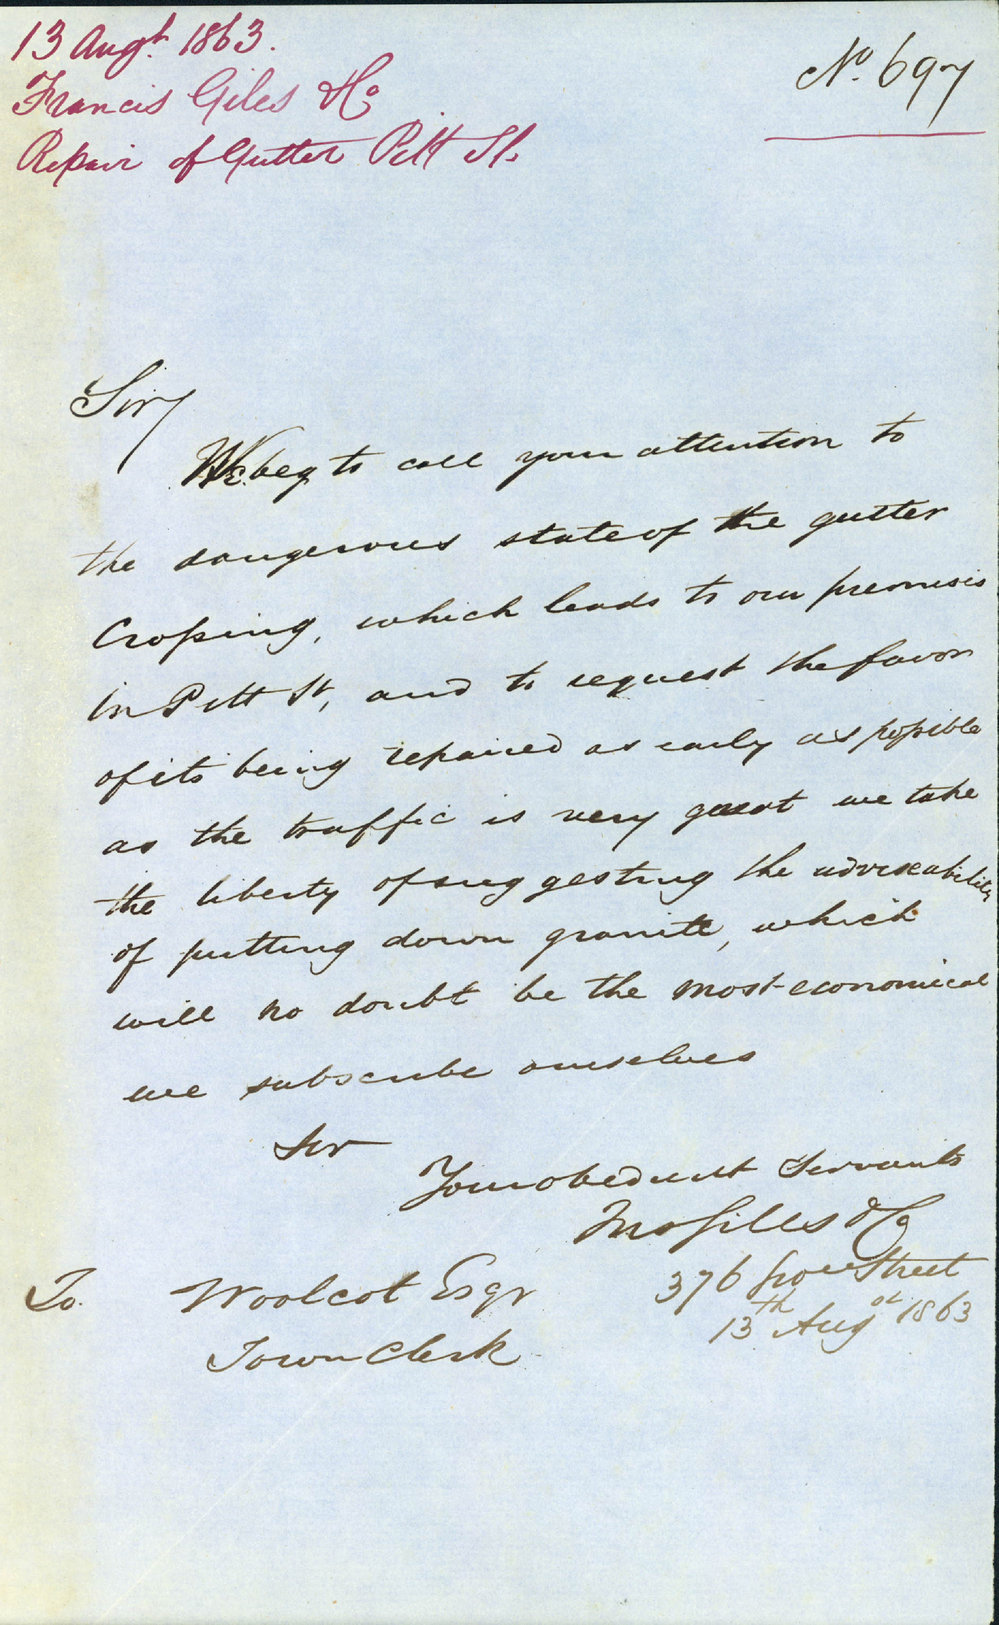 13 Augt. 1863.
Francis Giles & Co
Repair of Gutter Pitt St.
No. 697
Sir
We beg to call your attention to
the dangerous state of the gutter
Crossing, which leads to our premises
in Pitt St, and to request the favor
of its being repaired as early as possible
as the traffic is very great we take
the liberty of suggesting the adviseability
of putting down granite, which
will no doubt be the most economical
we subscribe ourselves
Sir
Your obedient Servants
Giles & Co
376 Street
13th Augst 1863
To. Woolcot Esqr
Town Clerk